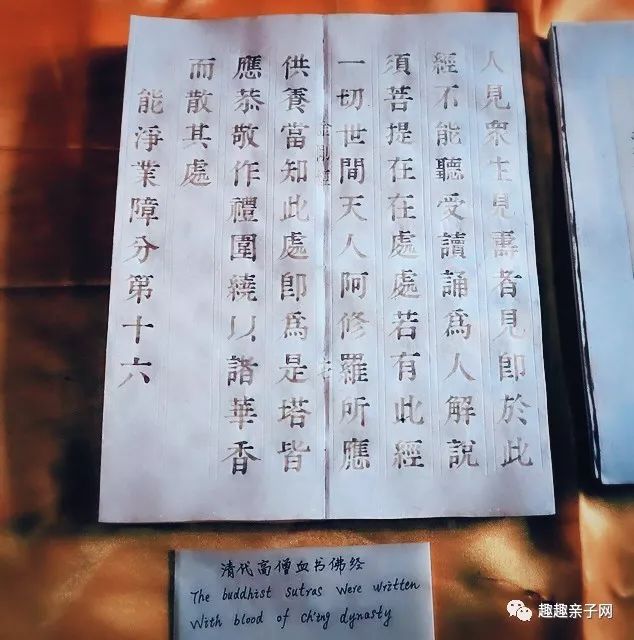 人見衆生見壽者見卽於此
經不能聽受讀誦爲人解說
須菩提在在處處若有此經
一切世間天人阿修羅所應
金剛經
供養當知此處卽爲是塔皆
應恭敬作禮圍繞以諸華香
而散其處
能淨業障分第十六
清代高僧血书佛经
The buddhist sutras were written
With blood of ch'ing dynasty
趣趣亲子网